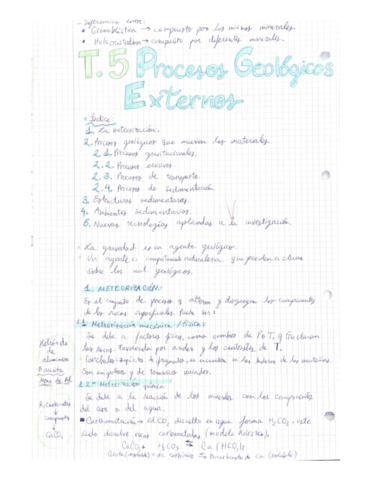 - Diferencia entre:
• Geoblástica → compuesto por los mismos minerales.
• Heteroblástica → compuesto por diferentes minerales.
T.5 Procesos Geológicos
Externos
Índice
1. La meteorización.
2. Procesos geológicos que mueven los materiales
2.1. Procesos gravitacionales.
2.2. Procesos erosivos.
2.3. Procesos de transporte.
2.4. Procesos de sedimentación
3. Estructuras sedimentarias.
4. Ambientes sedimentarios.
5. Nuevas tecnologías aplicadas a la investigación.
La gravedad es un agente geológico.
Un agente o componente
sobre los geológicos.
1. METEORIZACIÓN:
Es el conjunto de procesos q alteran y disgregan los componentes
de las rocas superficiales. Puede ser:
1.1 Meteorización mecánica / física:
Se debe a factores físicos, como cambios de P o Tª, q fracturan
las rocas, favorecida por
Son angulosos y de tamaños variados.
1.2 Meteorización química
Se debe a la reacción de los minerales con los componentes
del aire o del agua.
Carbonatación → El CO₂ disuelto en agua forma H₂CO₃, este
ácido disuelve rocas carbonatadas (modelo kárstico).
CaCO₃ + H₂CO₃ ⇆ Ca(HCO₃)₂
Bicarbonato de Ca (soluble)
Hidróxido
de
aluminio
Bauxita
R. Carbonatos
↓
↓
CaCO₃